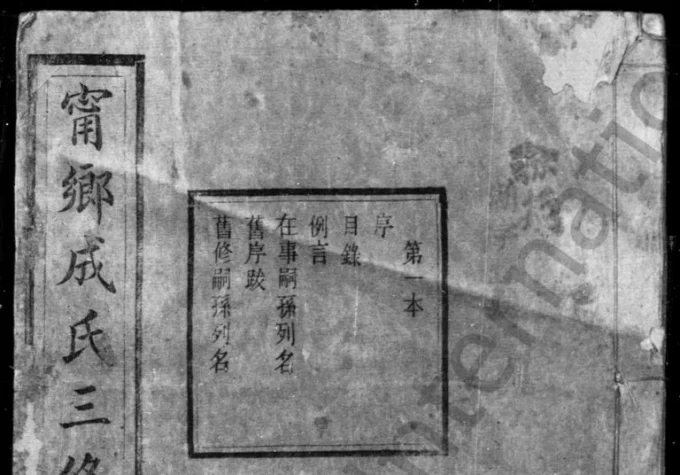 第一本
序
目錄
例言
在事嗣孫列名
舊序跋
舊修嗣孫列名
甯鄉成氏三修
internatio